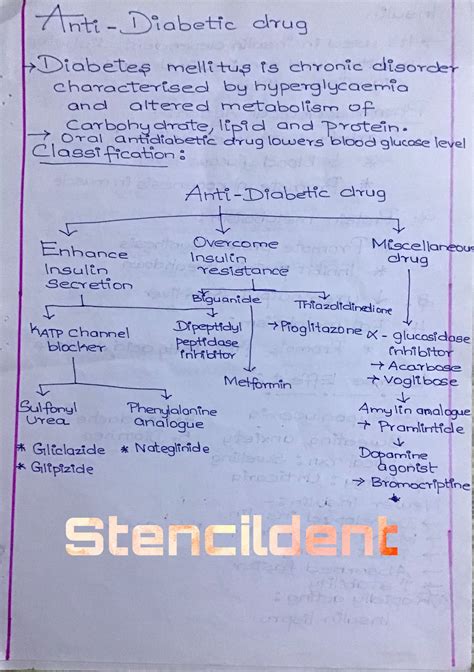 Anti-Diabetic drug
→ Diabetes mellitus is chronic disorder
characterised by hyperglycaemia
and altered metabolism of
Carbohydrate, lipid and Protein.
→ Oral antidiabetic drug lowers blood glucose level
Classification:
Anti-Diabetic drug
Enhance
Insulin
secretion
Overcome
Insulin
resistance
Miscellaneous
drug
KATP Channel
blocker
Dipeptidyl
peptidase
inhibitor
Biguanide
Metformin
Thiazolidinedione
→ Pioglitazone
α-glucosidase
inhibitor
→ Acarbose
→ Voglibose
Amylin analogue
→ Pramlintide
Dopamine
agonist
→ Bromocriptine
Sulfonyl
Urea
* Gliclazide
* Glipizide
Phenylalanine
analogue
* Nateglinide
Stencildent